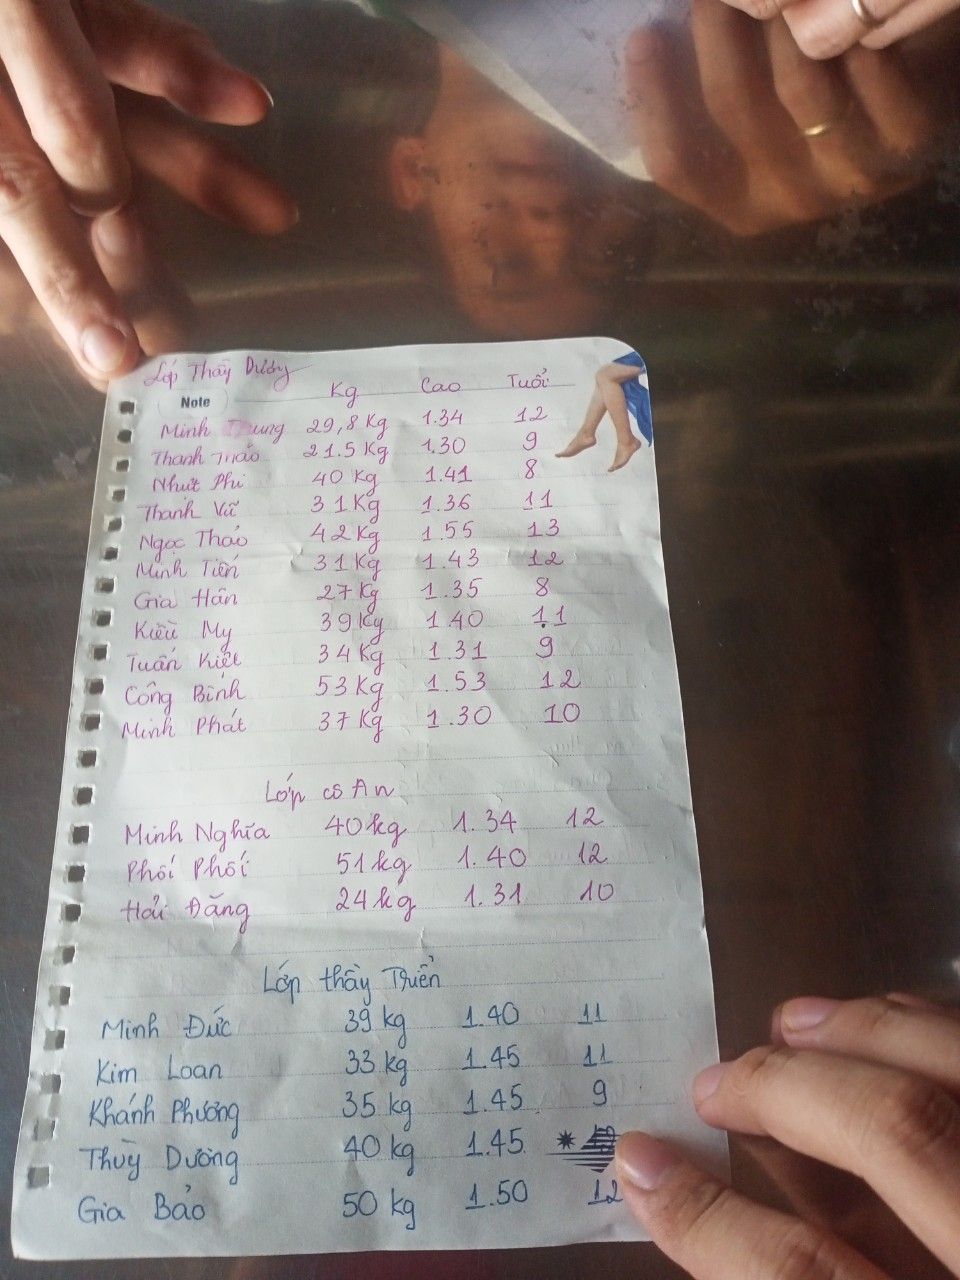 Lớp Thầy Dương
Note Kg Cao Tuổi
Minh Trung 29,8 Kg 1.34 12
Thanh Thảo 21.5 Kg 1.30 9
Nhựt Phi 40 Kg 1.41 8
Thanh Vũ 31 Kg 1.36 11
Ngọc Thảo 42 Kg 1.55 13
Minh Tiến 31 Kg 1.43 12
Gia Hân 27 Kg 1.35 8
Kiều My 39 Kg 1.40 11
Tuấn Kiệt 34 Kg 1.31 9
Công Bình 53 Kg 1.53 12
Minh Phát 37 Kg 1.30 10
Lớp cô An
Minh Nghĩa 40 kg 1.34 12
Phối Phối 51 kg 1.40 12
Hải Đăng 24 kg 1.31 10
Lớp thầy Triển
Minh Đức 39 kg 1.40 11
Kim Loan 33 kg 1.45 11
Khánh Phương 35 kg 1.45 9
Thuỳ Dương 40 kg 1.45
Gia Bảo 50 kg 1.50 12